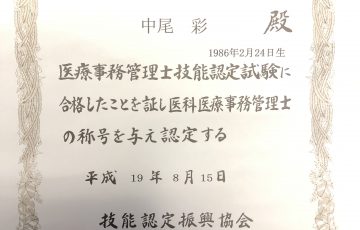 中尾 彩 殿
1986年2月24日生
医療事務管理士技能認定試験に
合格したことを証し医科医療事務管理士
の称号を与え認定する
平成 19 年 8 月 15 日
技能認定振興協会